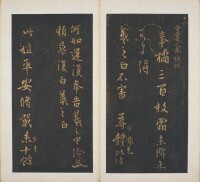 奉橘三百枚霜未降未
可多得
羲之白不審尊體比復
何如遲復奉告羲之中冷無
賴尋復白羲之白
此粗平安脩載來十餘